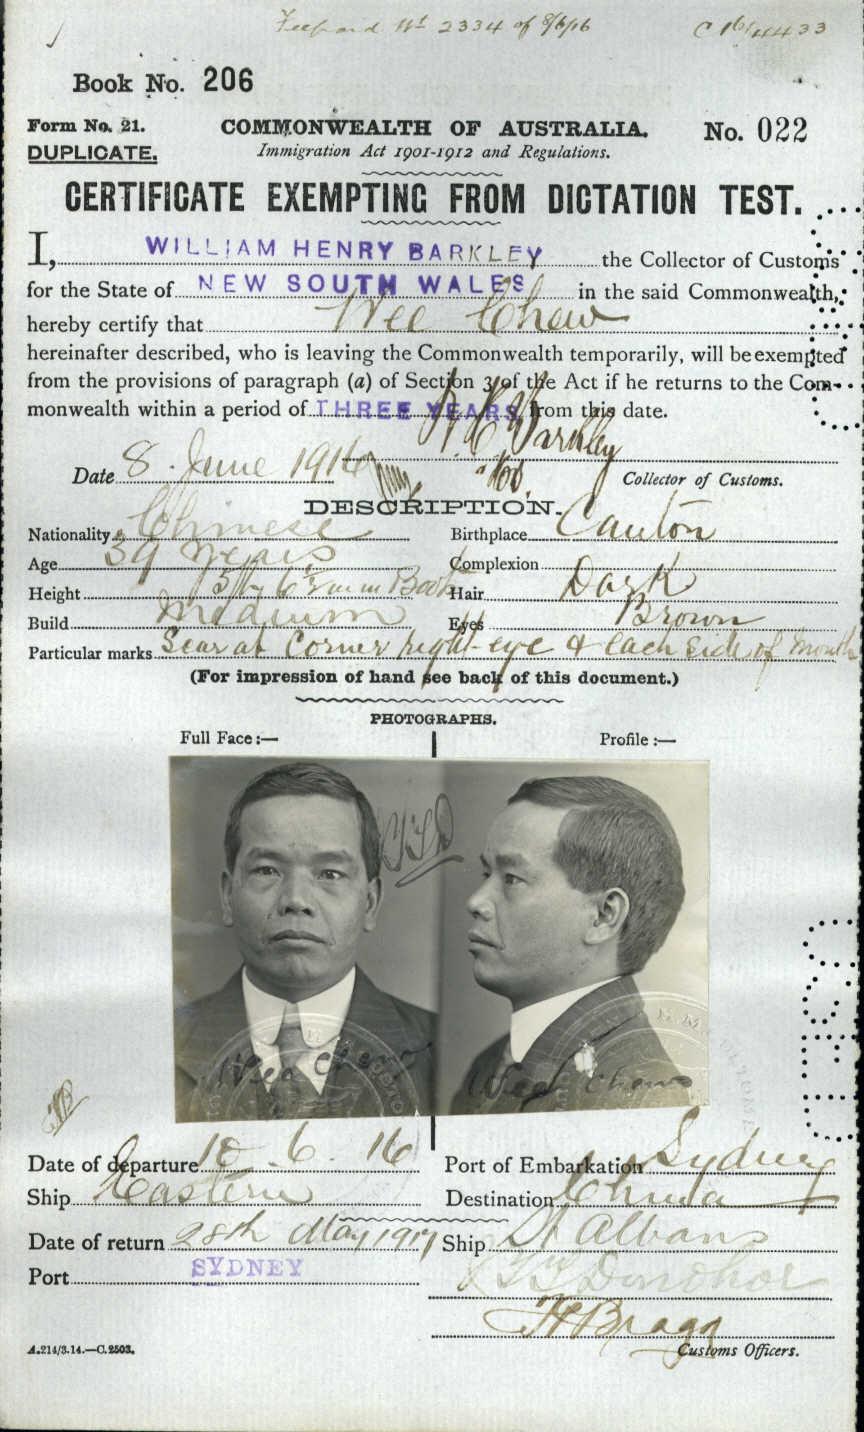 2334 of 8/6/16 C 16/4433
Book No. 206
Form No. 21. COMMONWEALTH OF AUSTRALIA. No. 022
DUPLICATE. Immigration Act 1901-1912 and Regulations.
CERTIFICATE EXEMPTING FROM DICTATION TEST.
I, WILLIAM HENRY BARKLEY the Collector of Customs
for the State of NEW SOUTH WALES in the said Commonwealth,
hereby certify that Wee Chew
hereinafter described, who is leaving the Commonwealth temporarily, will be exempted
from the provisions of paragraph (a) of Section 3 of the Act if he returns to the Com-
monwealth within a period of THREE YEARS from this date.
W. H. Barkley
Date 8. June 1916 Collector of Customs.
DESCRIPTION.
Nationality Chinese Birthplace Canton
Age 39 years Complexion
Height 5ft 6½ in in Boots Hair Dark
Build Medium Eyes Brown
Particular marks Scar at Corner right eye & each side of mouth
(For impression of hand see back of this document.)
PHOTOGRAPHS.
Full Face:— Profile:—
Wee Chew Wee Chew
Date of departure 10. 6. 16 Port of Embarkation Sydney
Ship Eastern Destination China
Date of return 28th May 1917 Ship St Albans
Port SYDNEY Donohoe
Bragg
A.214/3.14.—C.2503. Customs Officers.